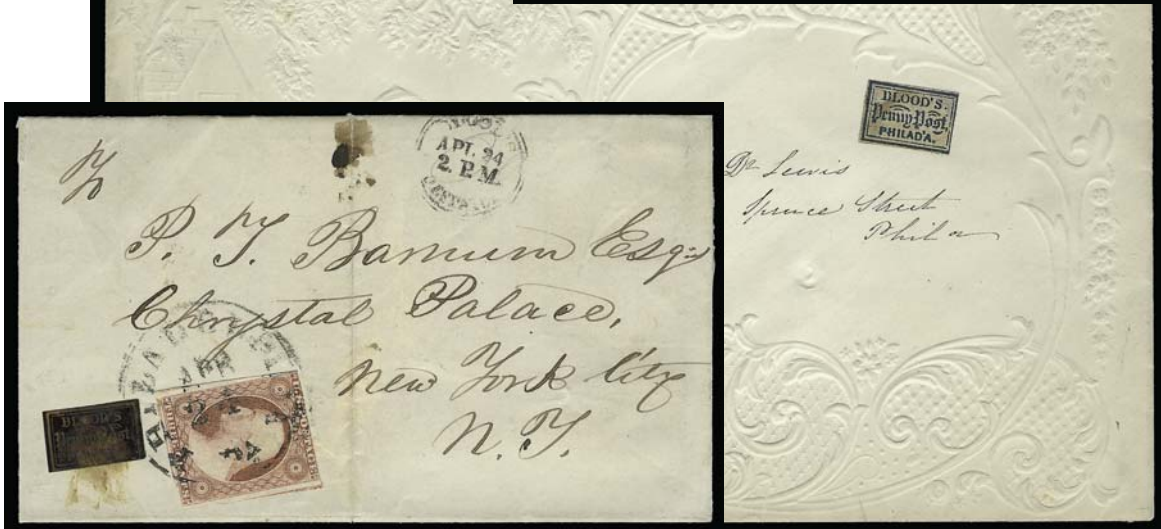 BLOOD'S
Penny Post,
PHILAD'A.
Dr Lewis
Spruce Street
Phila
To
APL 24
2. P.M.
P. T. Barnum Esqr
Chrystal Palace,
New York City
N. Y.